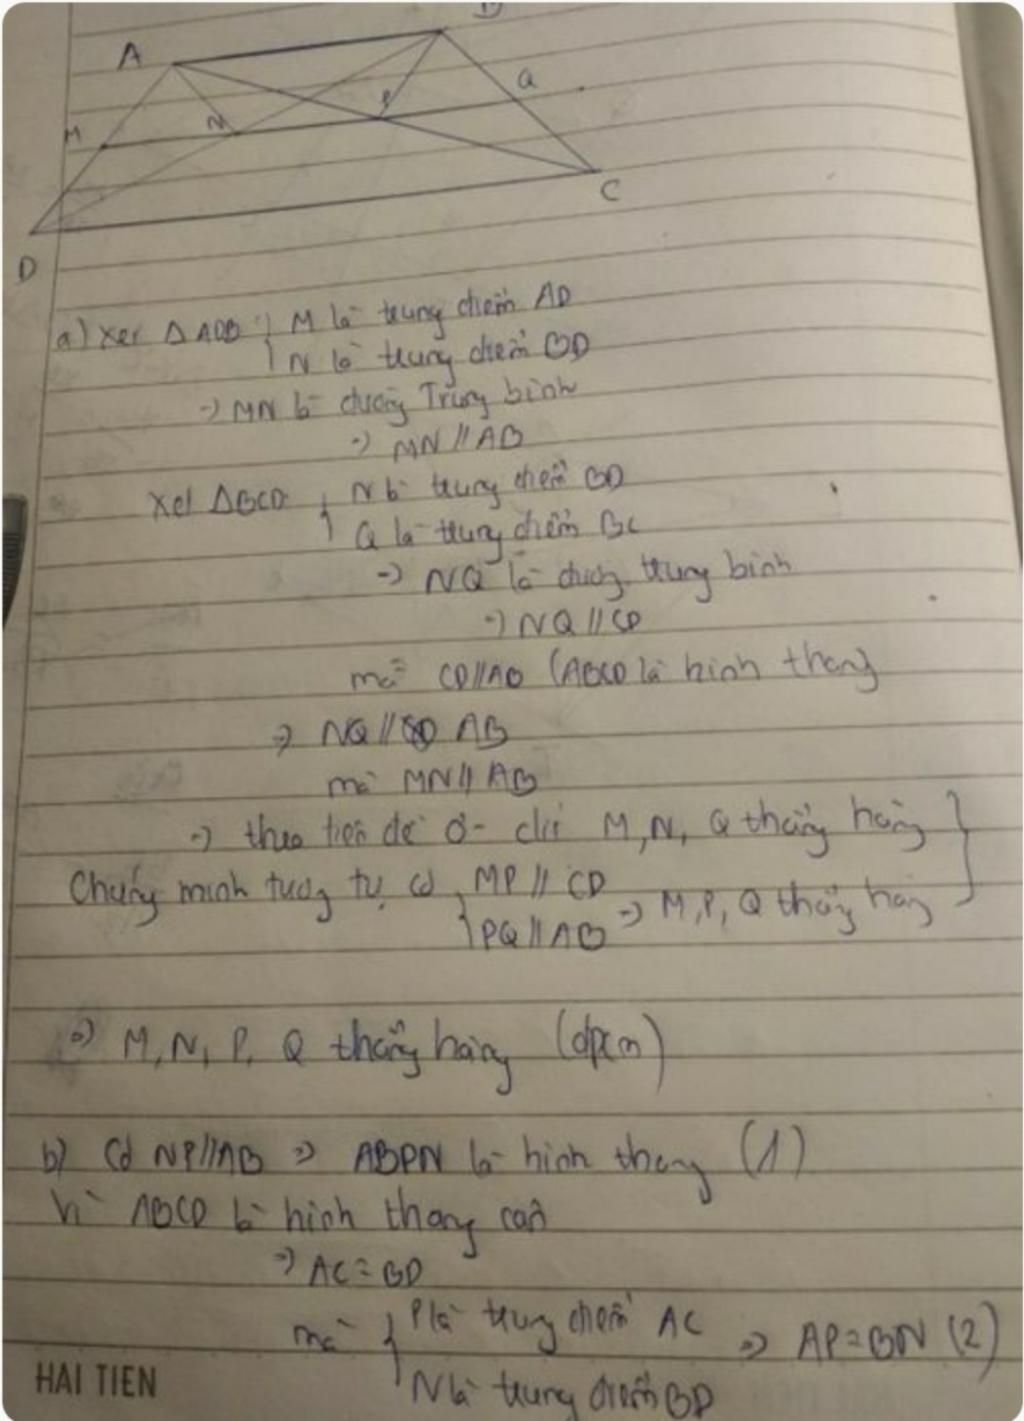 B
A
Q
P
M
N
C
D
a) Xét ΔADB { M là trung điểm AD
N là trung điểm BD
=> MN là đường Trung bình
=> MN // AB
Xét ΔBCD { N là trung điểm BD
Q là trung điểm BC
=> NQ là đường trung bình
=> NQ // CD
mà CD // AB (ABCD là hình thang)
=> NQ // AB
mà MN // AB
=> theo tiên đề Ơ-clit M, N, Q thẳng hàng }
Chứng minh tương tự có { MP // CD
PQ // AB => M, P, Q thẳng hàng
=> M, N, P, Q thẳng hàng (đpcm)
b) Có NP // AB => ABPN là hình thang (1)
Vì ABCD là hình thang cân
=> AC = BD
mà { P là trung điểm AC => AP = BN (2)
N là trung điểm BD
HAI TIEN